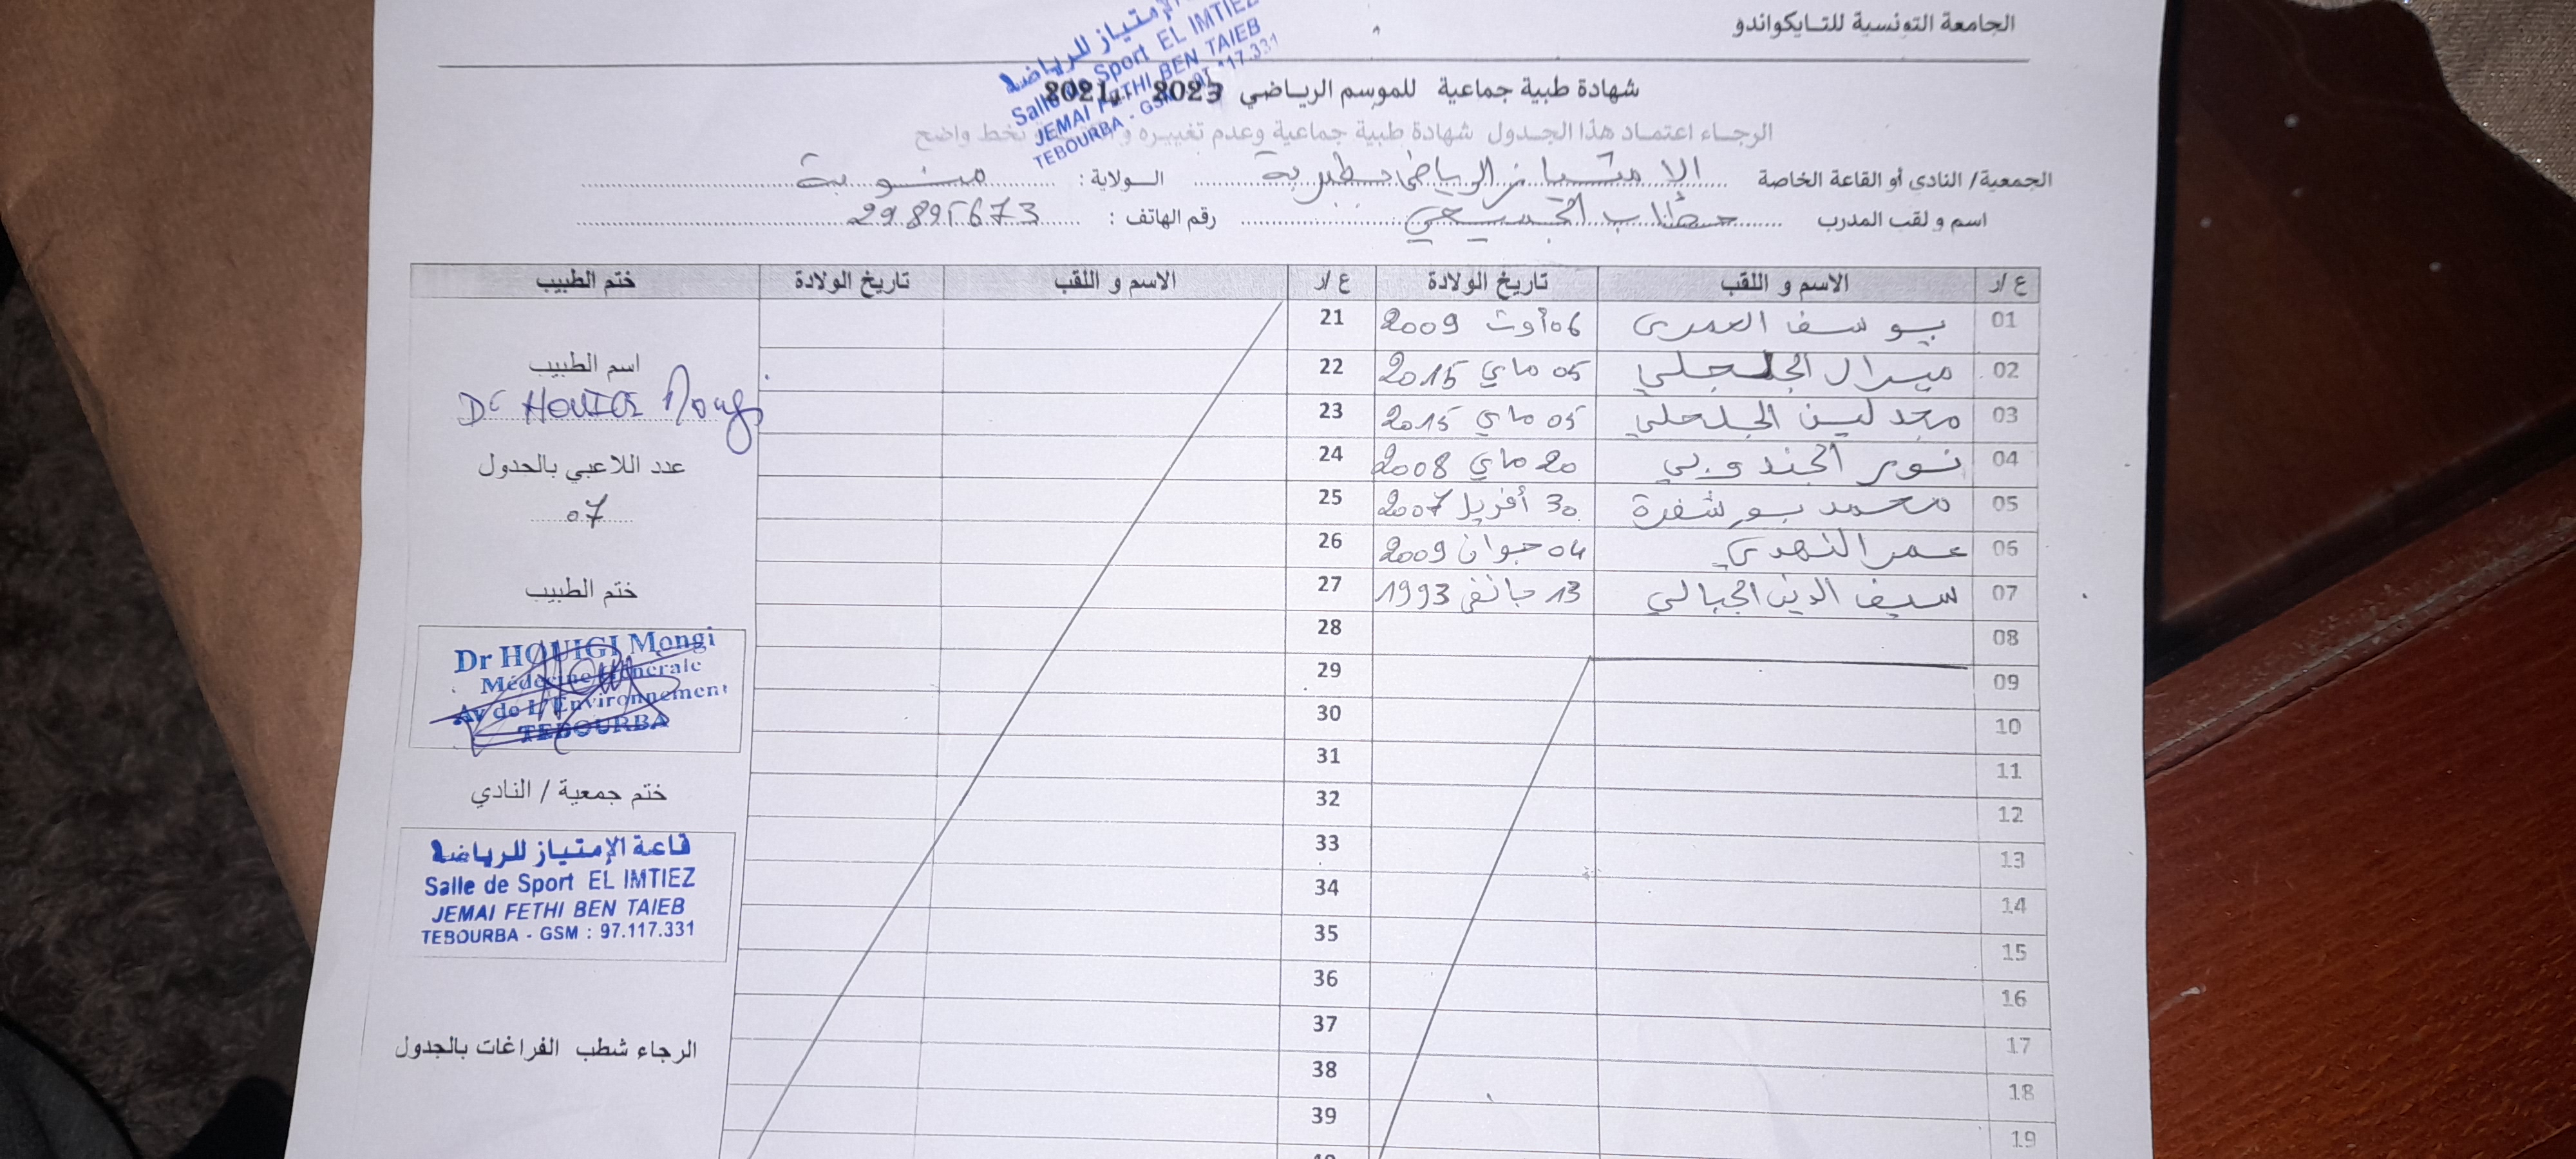 الجامعة التونسية للتايكواندو
الإمتياز للرياضة
Salle de Sport EL IMTIEZ
JEMAI FETHI BEN TAIEB
TEBOURBA - GSM 17.331
شهادة طبية جماعية للموسم الرياضي
الرجاء اعتماد هذا الجدول شهادة طبية جماعية وعدم تغييره بخط واضح
الجمعية/ النادي أو القاعة الخاصة الامتياز الرياضي بطبربة الولاية : منوبة
اسم و لقب المدرب خطاب رقم الهاتف : 29895673
ع /ر الاسم و اللقب تاريخ الولادة ع /ر الاسم و اللقب تاريخ الولادة ختم الطبيب
01 يوسف العمري 06 أوت 2009 21
02 ميرال الجلجلي 05 ماي 2015 22
03 مجدلين الجلجلي 05 ماي 2015 23
04 نور الجندوبي 20 ماي 2008 24
05 محمد بوشفرة 30 أفريل 2007 25
06 عمر النهدي 04 جوان 2009 26
07 سيف الدين الجبالي 13 جانفي 1993 27
08 28
09 29
10 30
11 31
12 32
13 33
14 34
15 35
16 36
17 37
18 38
19 39
اسم الطبيب
Dr HOUIGI Mongi
عدد اللاعبي بالجدول
07
ختم الطبيب
Dr HOUIGI Mongi
Médecine Générale
Av de L'Environnement
TEBOURBA
ختم جمعية / النادي
قاعة الإمتياز للرياضة
Salle de Sport EL IMTIEZ
JEMAI FETHI BEN TAIEB
TEBOURBA - GSM : 97.117.331
الرجاء شطب الفراغات بالجدول